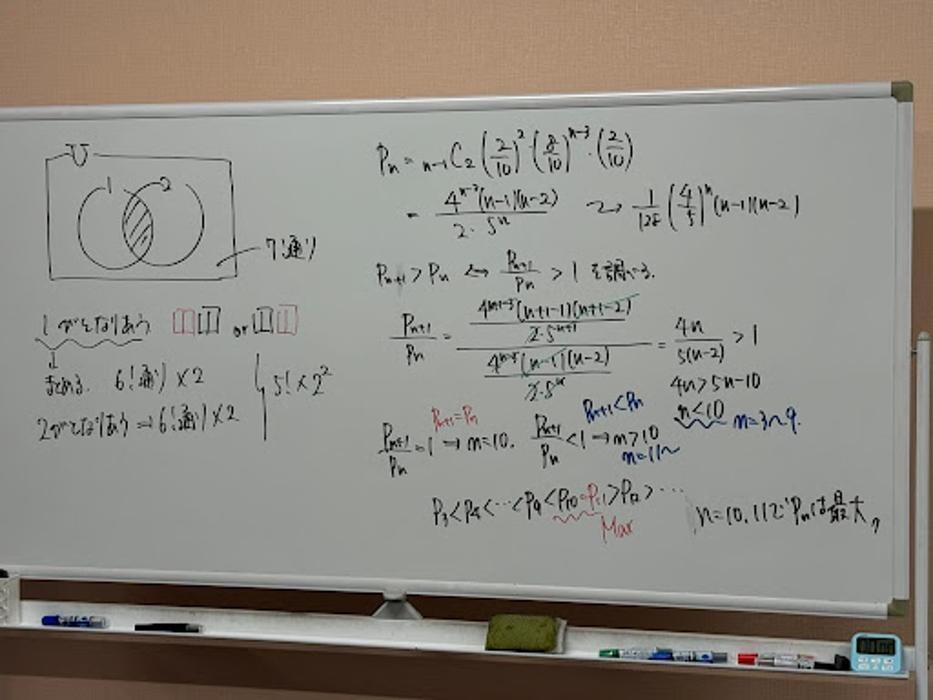 U
1 2
7!通り
1がとなりあう or
↓
まとめる. 6!通り×2
2がとなりあう→6!通り×2
5!×2²
Pₙ = ₙ₋₁C₂ (2/10)² (8/10)ⁿ⁻³ · (2/10)
= 4ⁿ⁻³(n-1)(n-2) / 2·5ⁿ → 1/128 (4/5)ⁿ (n-1)(n-2)
Pₙ₊₁ > Pₙ ↔ Pₙ₊₁/Pₙ > 1 を調べる.
Pₙ₊₁/Pₙ = (4ⁿ⁺¹⁻³(n+1-1)(n+1-2) / 2·5ⁿ⁺¹) / (4ⁿ⁻³(n-1)(n-2) / 2·5ⁿ) = 4n/5(n-2) > 1
4n > 5n-10
n < 10 n=3~9.
Pₙ₊₁=Pₙ Pₙ₊₁<Pₙ
Pₙ₊₁/Pₙ = 1 → n=10. Pₙ₊₁/Pₙ < 1 → n>10
n=11~
P₃<P₄<…<P₉<P₁₀=P₁₁>P₁₂>…
Max
n=10,11でPₙは最大